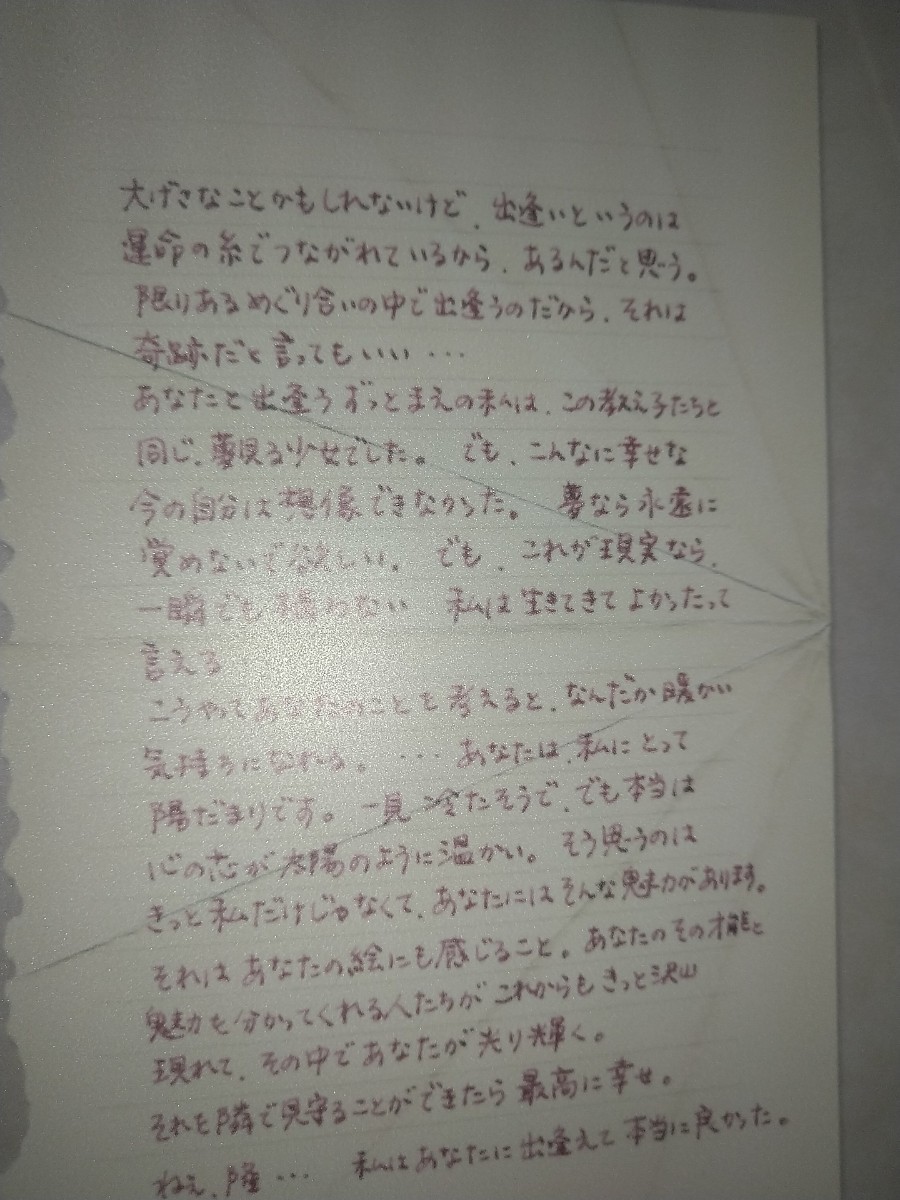 大げさなことかもしれないけど、出逢いというのは
運命の糸でつながれているから、あるんだと思う。
限りあるめぐり合いの中で出逢うのだから、それは
奇跡だと言ってもいい…
あなたと出逢うずっとまえの私は、この教え子たちと
同じ、夢見る少女でした。 でも、こんなに幸せな
今の自分は想像できなかった。 夢なら永遠に
覚めないで欲しい。 でも、これが現実なら、
一瞬でも構わない 私は生きてきてよかったって
言える
こうやってあなたのことを考えると、なんだか暖かい
気持ちになれる。 … あなたは、私にとって
陽だまりです。 一見冷たそうで、でも本当は
心の芯が太陽のように温かい。 そう思うのは
きっと私だけじゃなくて、あなたにはそんな魅力があります。
それはあなたの絵にも感じること。あなたのその才能と
魅力を分かってくれる人たちがこれからもきっと沢山
現れて、その中であなたが光り輝く。
それを隣で見守ることができたら最高に幸せ。
ねぇ、隆… 私はあなたに出逢えて本当に良かった。